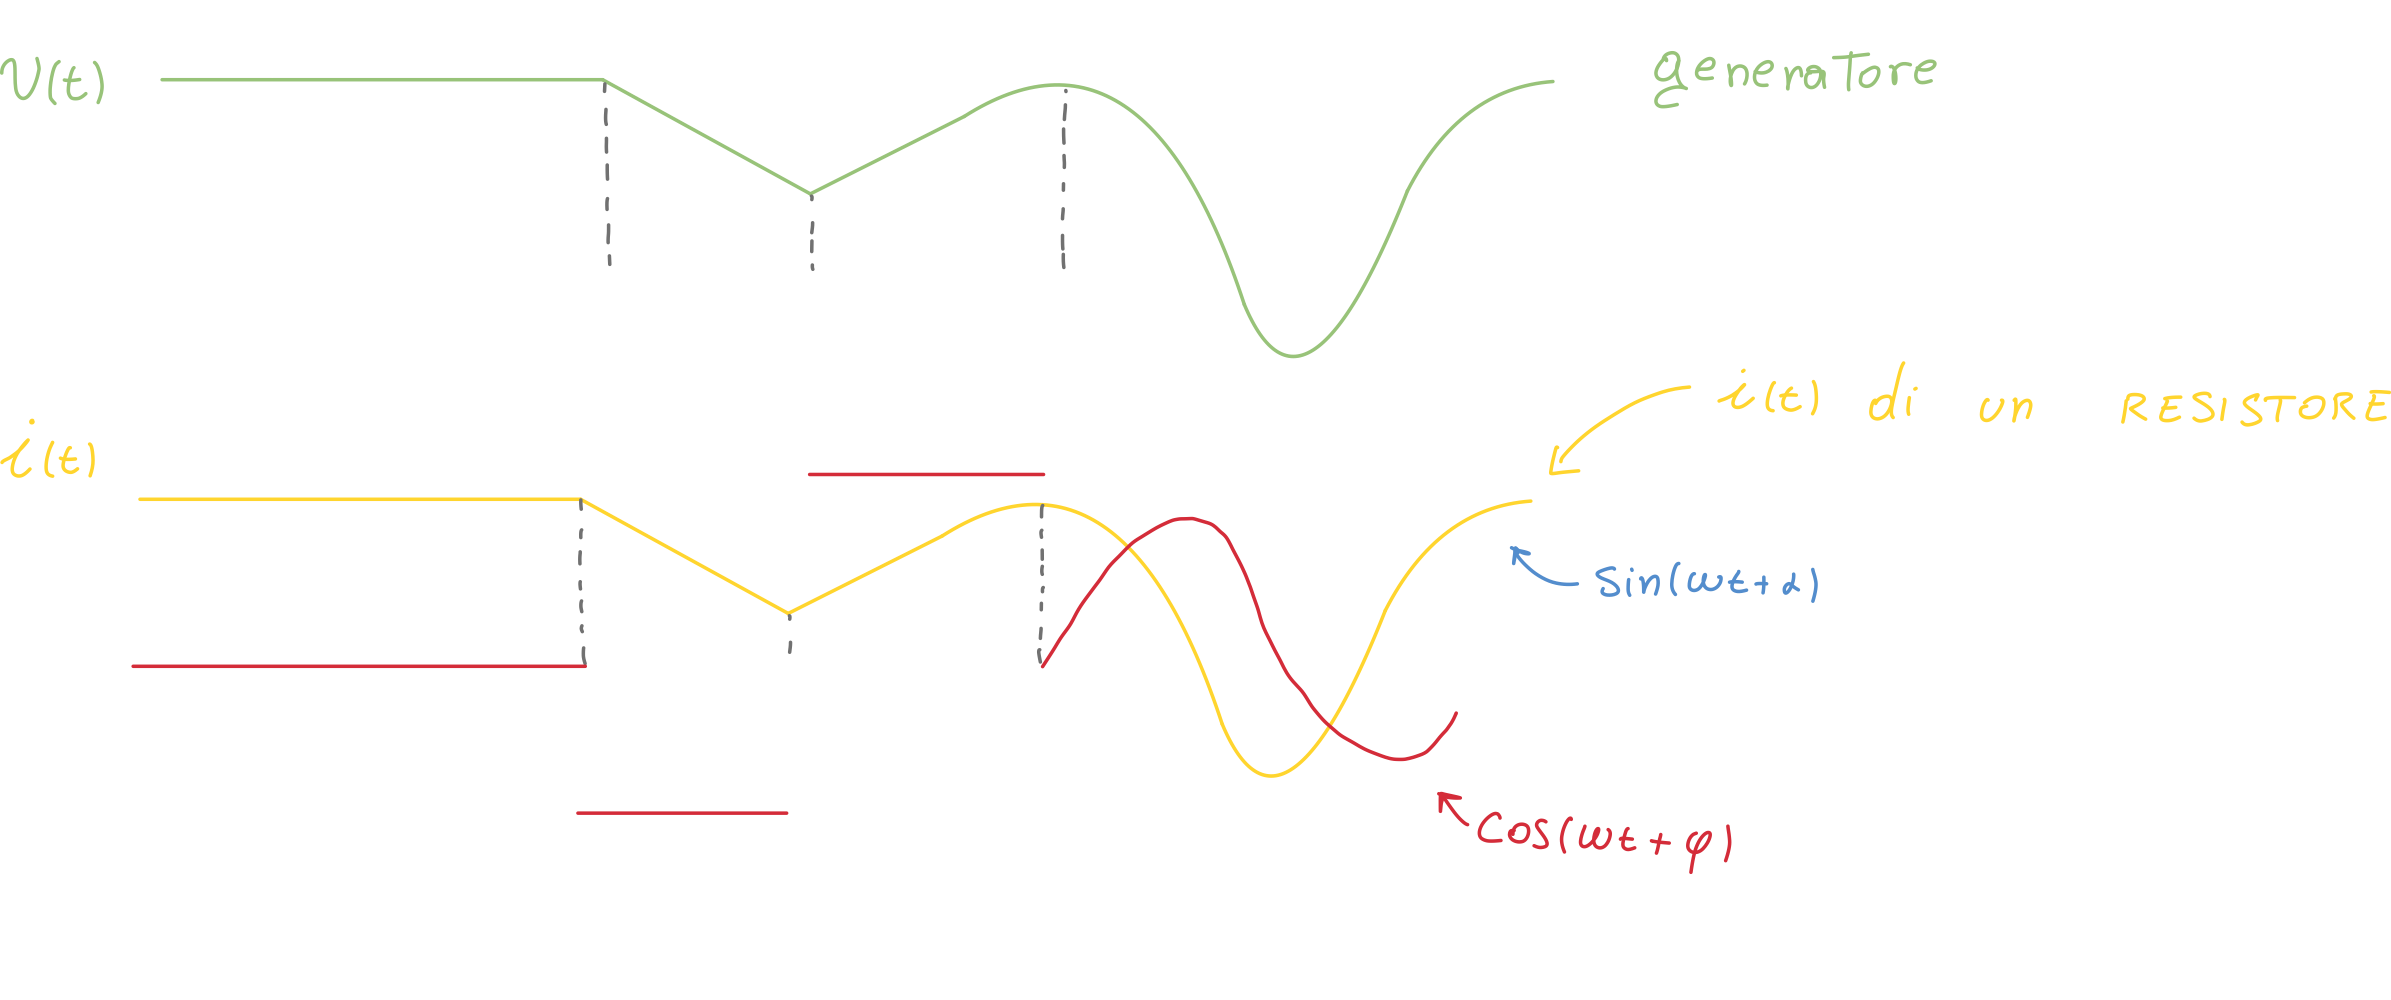 v(t)
generatore
i(t) di un RESISTORE
i(t)
sin(ωt+α)
cos(ωt+φ)